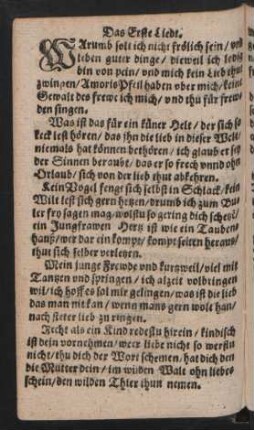 Das Erste Liedt.
WArumb solt ich nicht frölich sein / vnd
lieben guter dinge / dieweil ich ledig
bin von pein / vnd mich kein Lieb thut
zwingen / Amoris Pfeil haben vber mich / keine
Gewalt des frewe ich mich / vnd thu für frewd
den singen.
Was ist das für ein küner Helt / der sich so
keck lest hören / das ihn die lieb in dieser Welt /
niemals hat können bethören / ich glaub er sey
der Sinnen beraubt / das er so frech vnnd ohn
Orlaub / sich von der lieb thut abkehren.
Kein Vogel fengt sich selbst in Schlack / kein
Wilt lest sich gern hetzen / drumb ich zum Bu-
ler kry sagen mag / wolstu so gering dich schetz /
ein Jungfrawen Hertz ist wie ein Tauben
hauß / wer dar ein kompt / kompt selten heraus /
thut sich selber verletzen.
Mein junge Frewde vnd kurtzweil / viel mit
Tantzen vnd springen / ich alzeit volbringen
wil / ich hoff es sol mir gelingen / was ist die lieb
das man nit kan / wenn mans gern wolt han /
nach steter lieb zu ringen.
Recht als ein Kind redestu hirein / kindisch
ist dein vornehmen / wer liebe nicht so werstu
nicht / thu dich der Wort schemen / hat dich den
die Mutter dein / im wüden Walt ohn liebes
schein / den wilden Thier thun nemen.